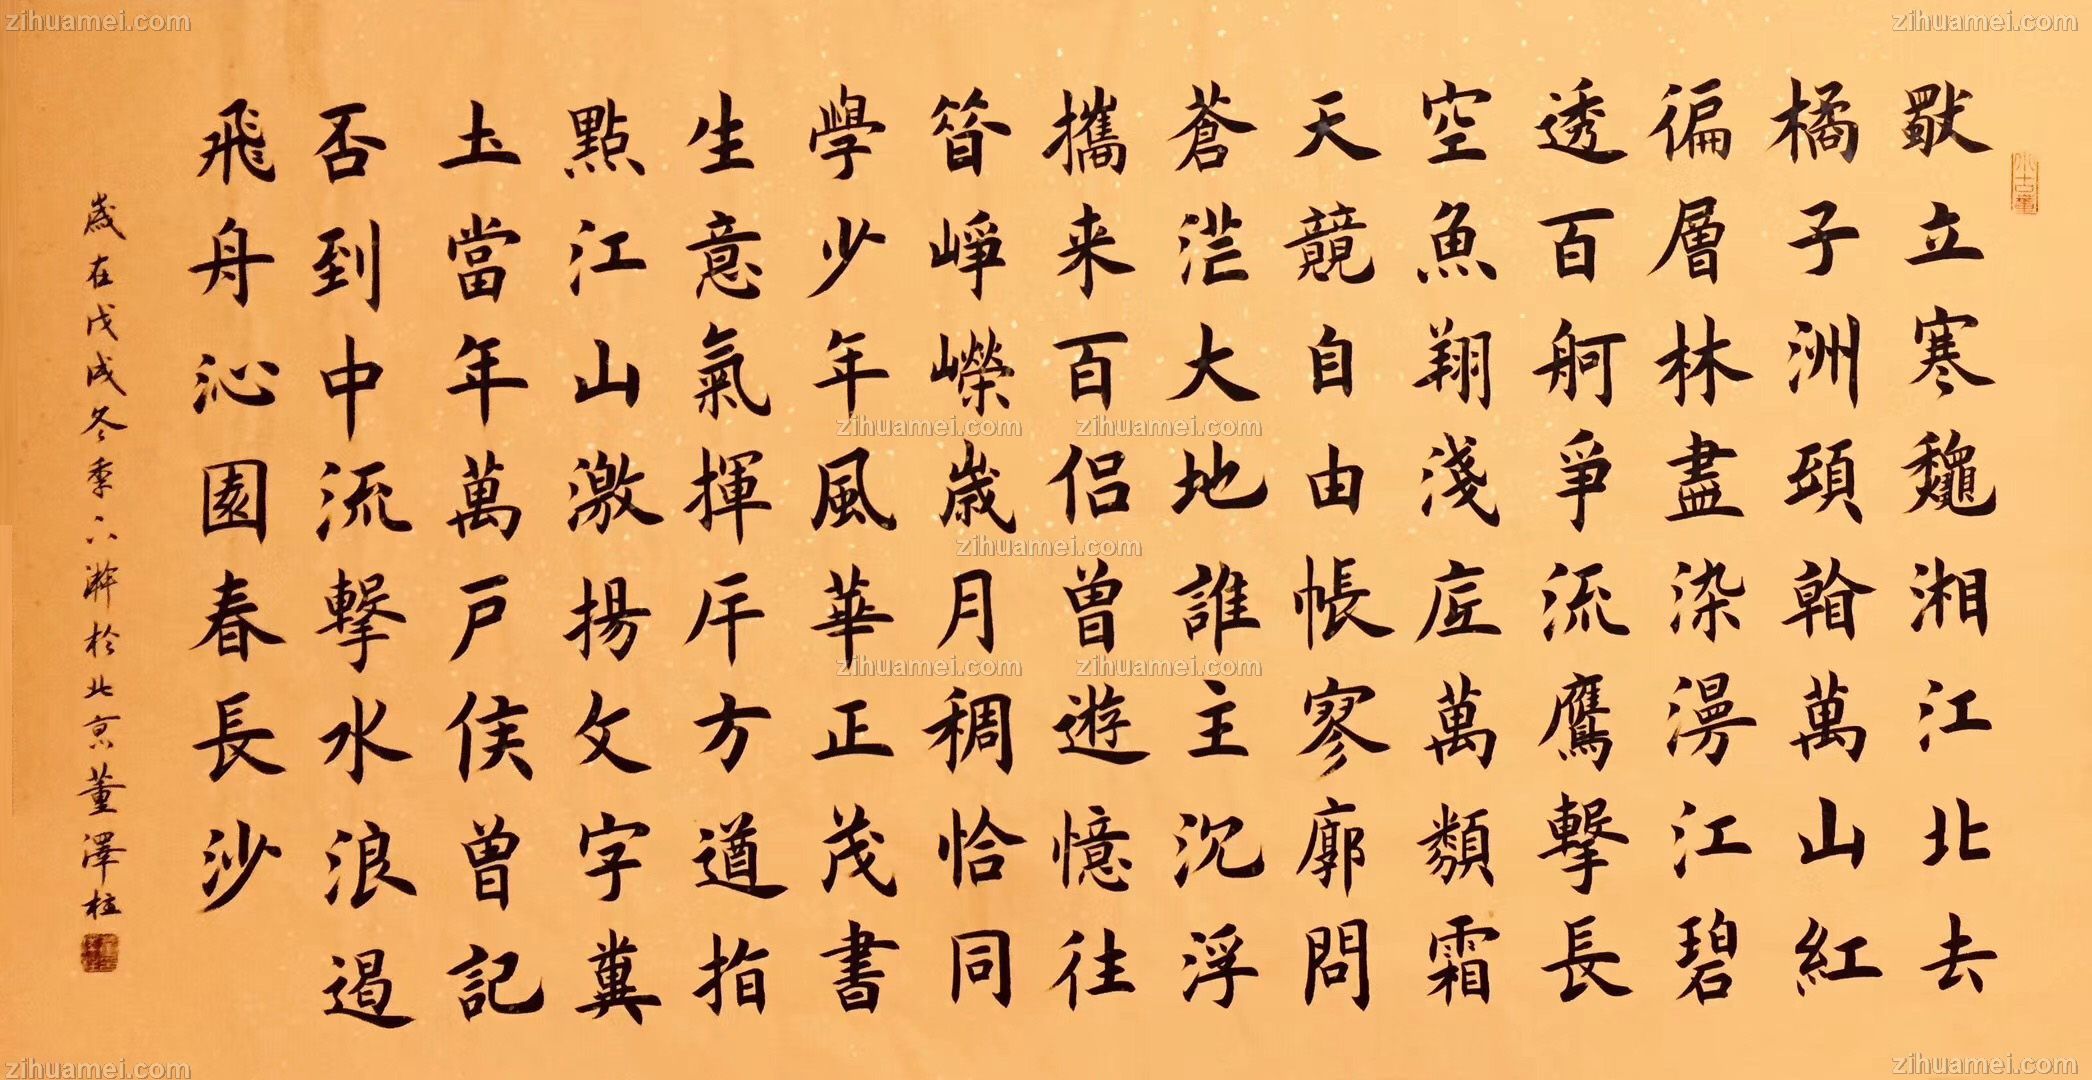 獨立寒穐湘江北去
橘子洲頭㸔萬山紅
徧層林盡染漫江碧
透百舸爭流鷹擊長
空魚翔淺底萬類霜
天競自由悵寥廓問
蒼茫大地誰主沉浮
攜来百侣曽遊憶往
昔崢嶸歲月稠恰同
學少年風華正茂書
生意氣揮斥方遒指
點江山激揚文字糞
土當年萬戸侯曽記
否到中流擊水浪遏
飛舟沁園春長沙
歲在戊戌冬季 於北京董澤柱
zihuamei.com
zihuamei.com
zihuamei.com
zihuamei.com
zihuamei.com
zihuamei.com
zihuamei.com
zihuamei.com
zihuamei.com